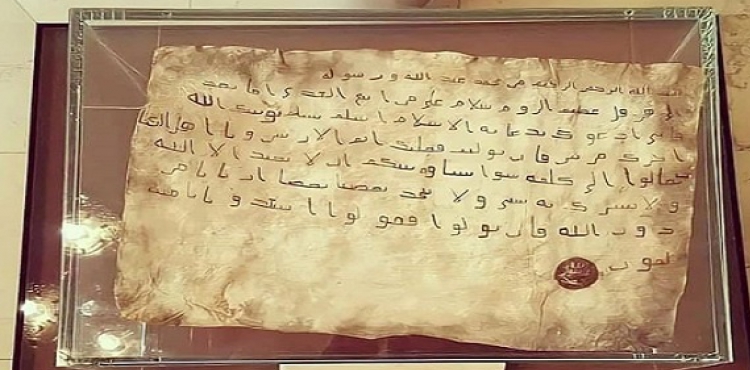 بسم الله الرحمن الرحيم من محمد عبد الله ورسوله
الى هرقل عظيم الروم سلام على من اتبع الهدى اما بعد
فانى ادعوك بدعاية الاسلام اسلم تسلم يوتك الله
اجرك مرتين فان توليت فعليك اثم الاريسين ويا اهل الكتا
ب تعالوا الى كلمة سوا بيننا وبينكم ان لا نعبد الا الله
ولا نشرك به شيا ولا يتخذ بعضنا بعضا اربابا من
دون الله فان تولوا فقولوا اشهدوا بانا مس
لمون